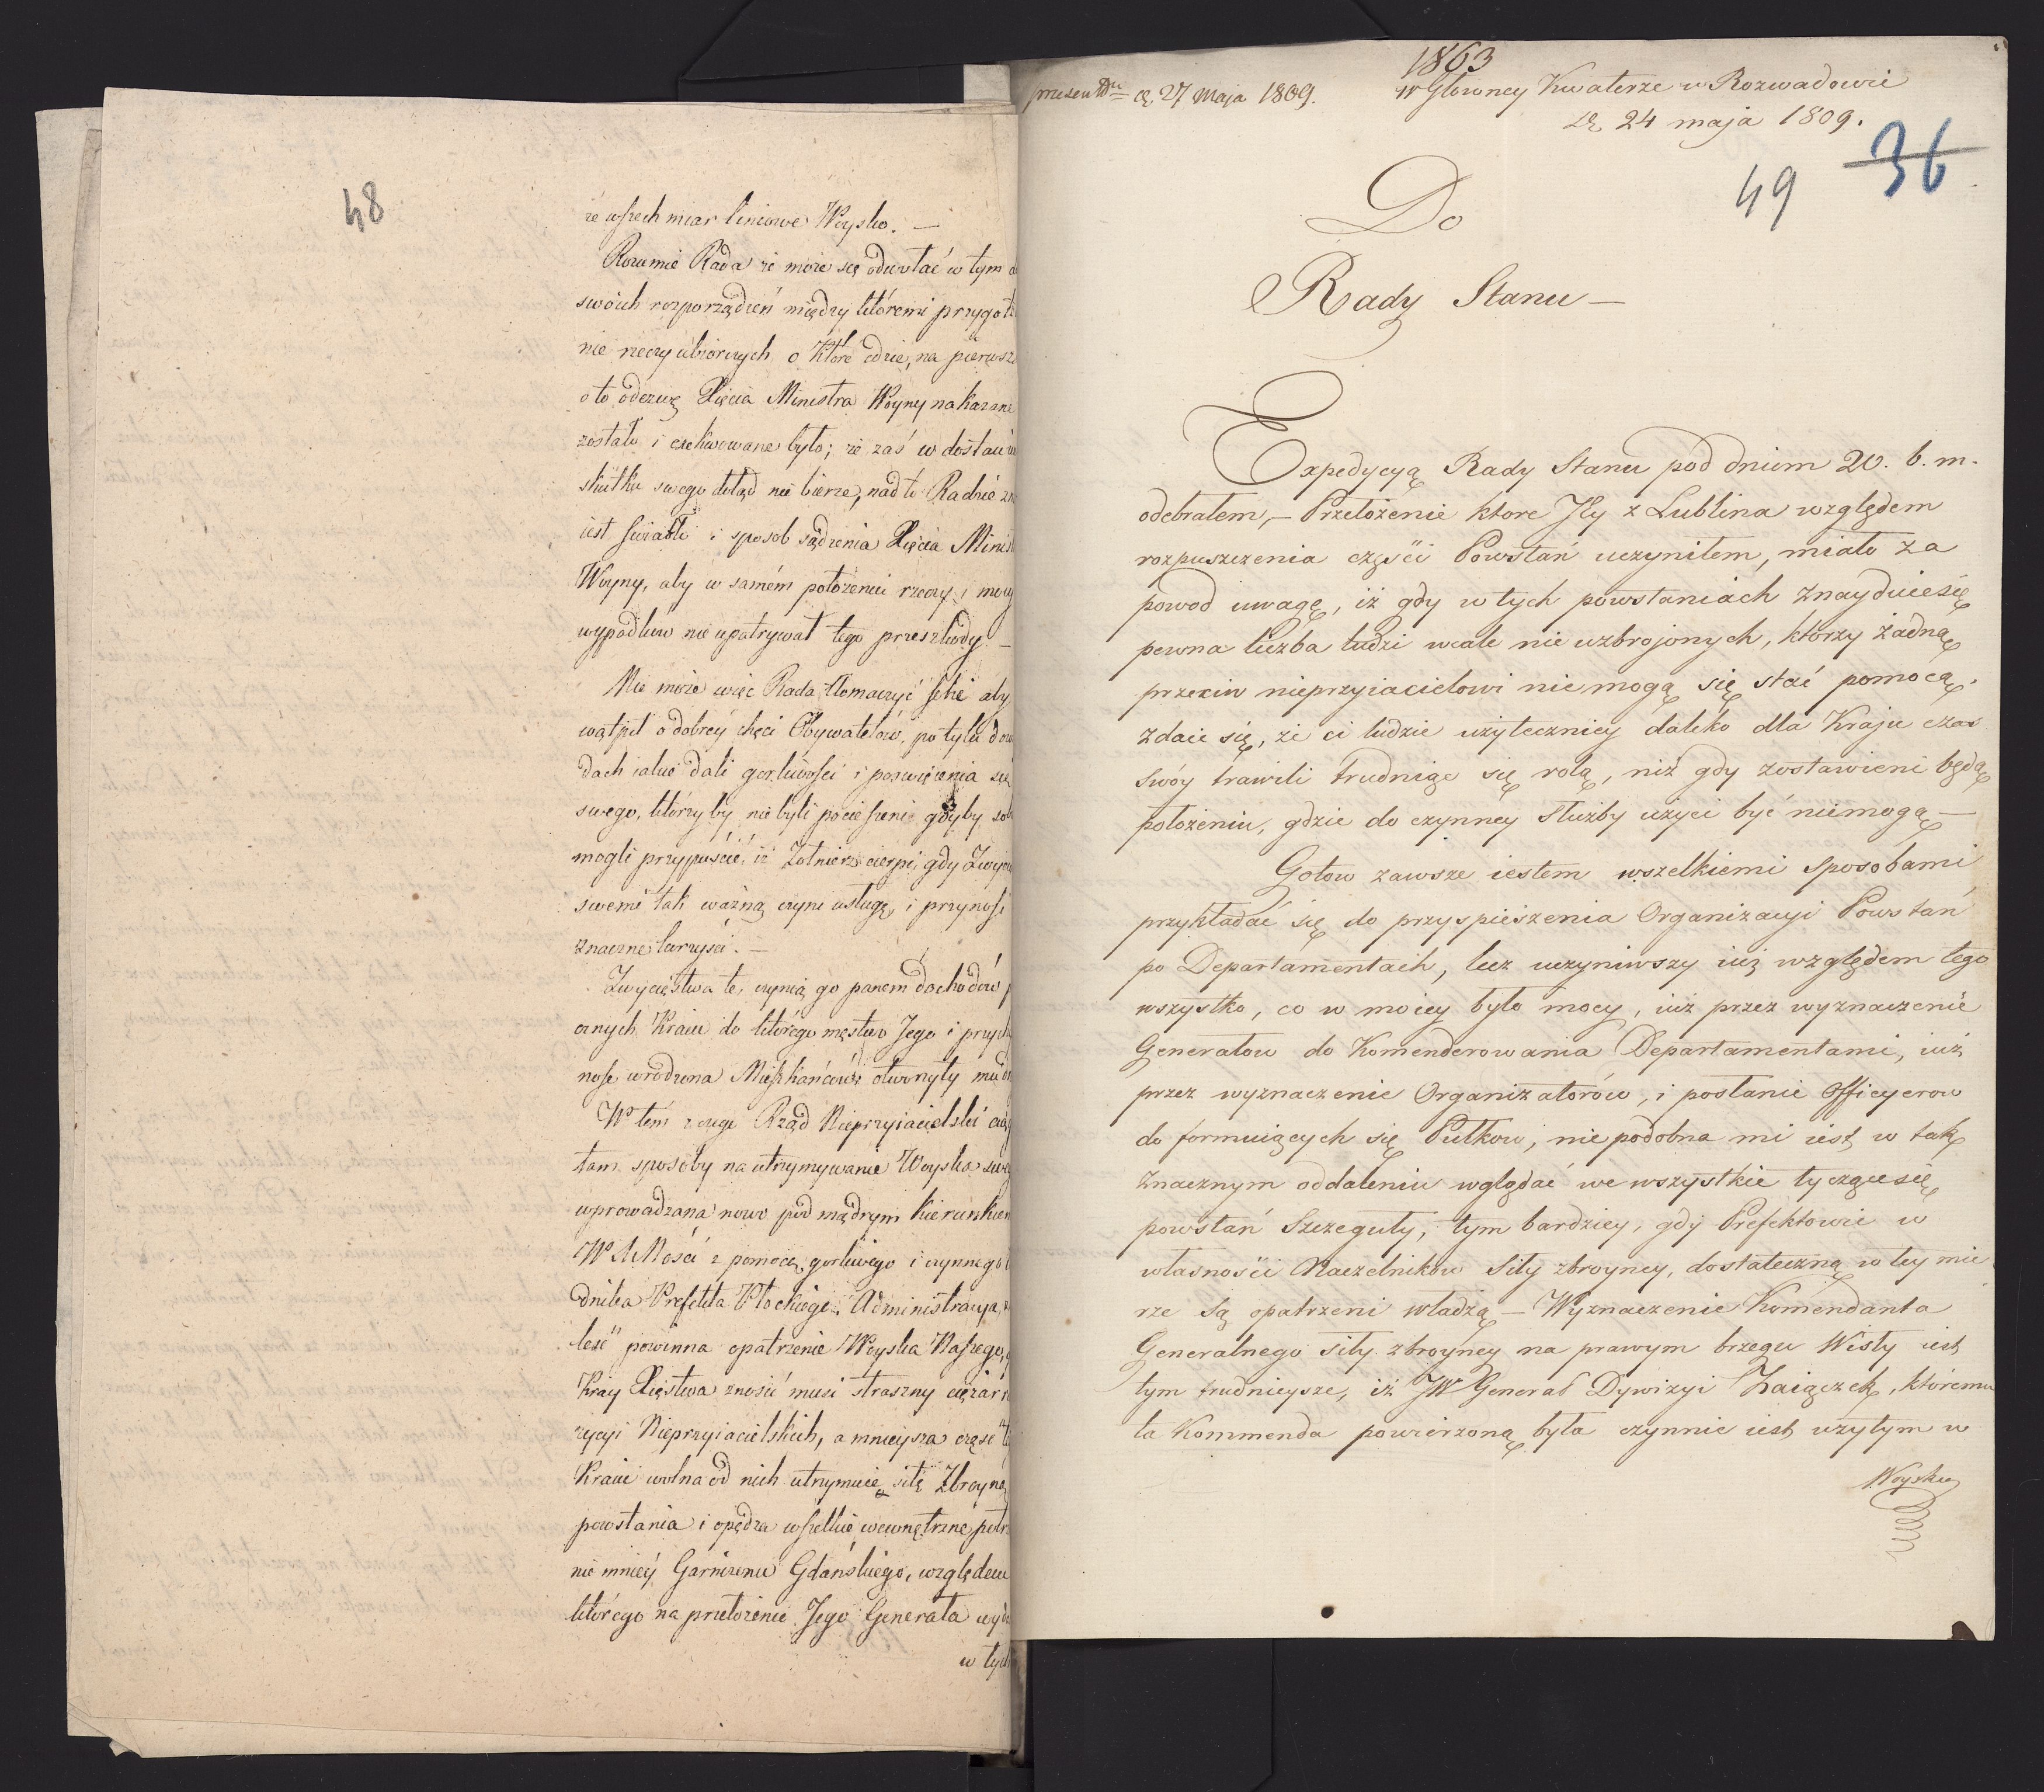 48
ze wszech miar liniowe Woysko. —
Rozumie Rada że może się odwołać w tym
swoich rozporządzeń między któremi przygot
nie rzeczy ubiorczych o które idzie, na pierwsz
o to odezwę Xięcia Ministra Woyny nakazane
zostało i exekwowane było; że zaś w dostaw
skutku swego dotąd nie bierze, nad to Radzie zn
iest światło i sposob sądzenia Xięcia Minist
Woyny, aby w samém położeniu rzeczy i mocy
wypadków nie upatrywał tego przeszkody —
Nie może więc Rada tłomaczyć sobie aby
wątpił o dobrey chęci Obywatelów, po tylu dow
dach iakie dali gorliwości i poswięcenia się
swego, którzy by nie byli pocieszeni gdyby sob
mogli przypuścić, iż Zołnierz cierpi, gdy Zwycię
swemi tak ważną czyni usługę, i przynosi
znaczne korzyści. —
Zwycięstwa te, czynią go panem dochodów p
cznych Kraiu do którego męstwo Jego i przych
nosc wrodzona Mieszkańców otworzyły mu d
W tém z czego Rząd Nieprzyiacielski cią
tam sposoby na utrzymywanie Woyska sweg
wprowadzana nowo pod mądrym kierunkiem
W X Mości z pomocą gorliwego i czynnego U
dnika Prefekta Płockiego, Administracya, z
leść powinna opatrzenie Woyska Naszego, g
Kray Xięstwa znosić musi straszny ciężar r
zycyi Nieprzyiacielskich, a mnieysza część te
Kraiu wolna od nich utrzymuie siłę Zbroyną
powstania i opędza wszelkie wewnętrzne potrz
nie mniey Garnizonu Gdańskiego, względem
którego na przełożenie Jego Generała wyd
w tych
1863
præsentatum d. 27 Maja 1809.
W Głowney Kwaterze w Rozwadowie
d. 24 maja 1809.
49 36
Do
Rady Stanu —
Expedycyą Rady Stanu pod dniem 20. b. m.
odebrałem, — Przełożenie ktore Jey z Lublina względem
rozpuszczenia części Powstań uczyniłem, miało za
powod uwagę, iż gdy w tych powstaniach znayduie się
pewna liczba ludzi wcale nie uzbrojonych, którzy żadną
przeciw nieprzyjacielowi nie mogą się stać pomocą,
zdaie się, że ci ludzie użyteczniey daleko dla Kraju czas
swóy trawili trudniąc się rolą, niż gdy zostawieni będą
położeniu, gdzie do czynney służby użyci być niemogą —
Gotow zawsze iestem wszelkiemi sposobami
przykładać się do przyspieszenia Organizacyi Powstań
po Departamentach, lecz uczyniwszy iuż względem tego
wszystko, co w moiey było mocy, iuż przez wyznaczenie
Generałow do Komenderowania Departamentami, iuż
przez wyznaczenie Organizatorów, i posłanie Officyerow
do formuiących się Pułkow, niepodobna mi iest w tak
znacznym oddaleniu wglądać we wszystkie tyczące się
powstań Szczeguły, tym bardziey, gdy Prefektowie w
własności Naczelników siły zbroyney, dostateczną w tey mie
rze są opatrzeni władzą — Wyznaczenie Komendanta
Generalnego siły zbroyney na prawym brzegu Wisły iest
tym trudnieysze, iż JW Generał Dywizyi Zaiączek, któremu
ta Kommenda powierzoną była czynnie iest użytym w
Woysku